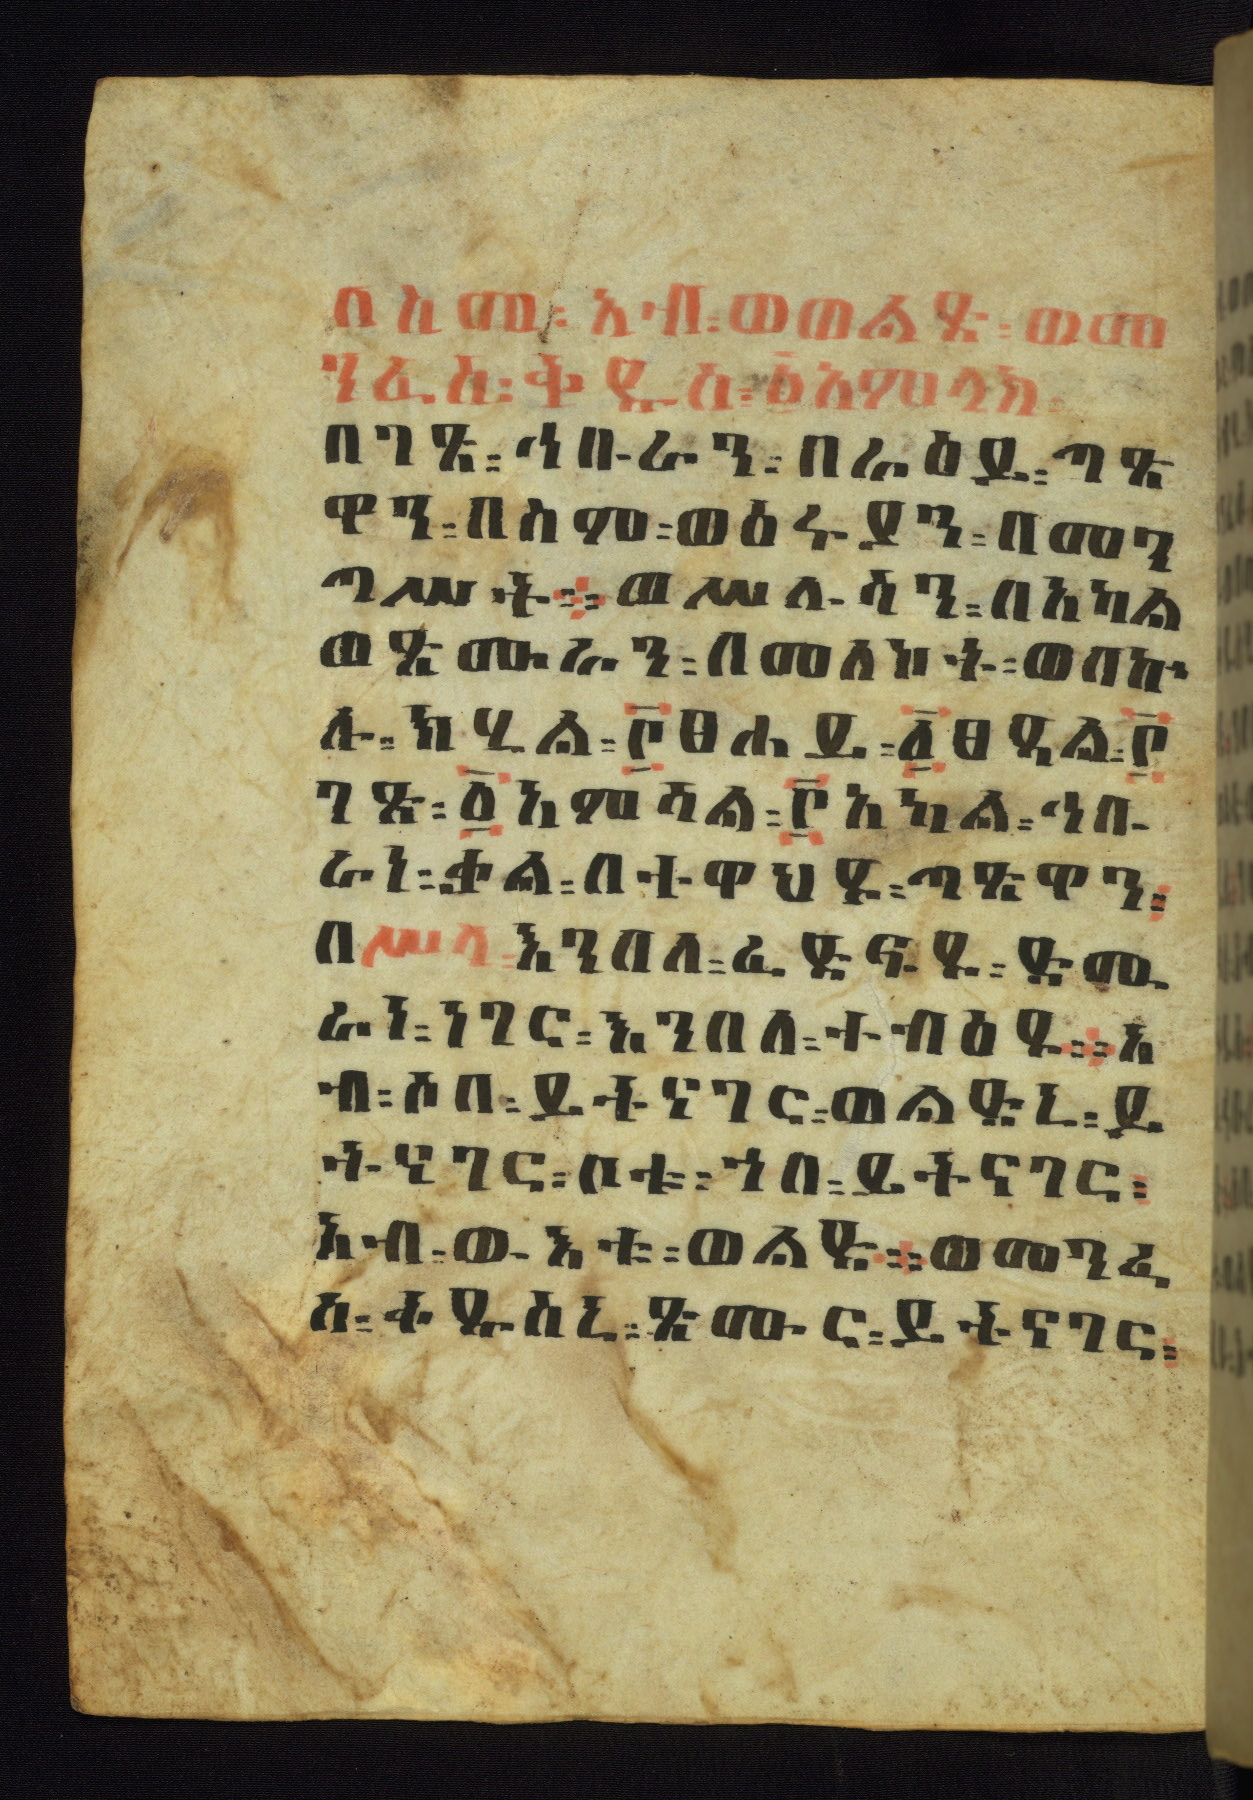 በስመ፡ አብ፡ ወወልድ፡ ወመ
ንፈስ፡ ቅዱስ፡ ፩አምላክ፡
በገጽ፡ ኅቡራን፡ በሥዕይ፡ ጣጽ
ዋን፡ በስም፡ ወዕሩያን፡ በመን
ጣሥት፨ ወሥሉሳን፡ በአካል
ወጽሙራን፡ በመለኮት፡ ወበኵ
ሉ፡ ክሂል፡ ፫ፀሐይ፡ ፩ፀዳል፡ ፫
ገጽ፡ ፩አምሳል፡ ፫አካል፡ ኅቡ
ራነ፡ ቃል፡ በተዋህዶ፡ ጣጽዋን፡
በሥላ፡ እንበለ፡ ፈድፍዶ፡ ድሙ
ራነ፡ ነገር፡ እንበለ፡ ተብዕዶ፨ አ
ብ፡ ሶበ፡ ይትኖገር፡ ወልድኒ፡ ይ
ትኖገር፡ ቦቱ፡ ኀበ፡ ይትናገር፡
አብ፡ ውእቱ፡ ወልድ፨ ወመንፈ
ስ፡ ቅዱስኒ፡ ጽሙር፡ ይትናገር፡